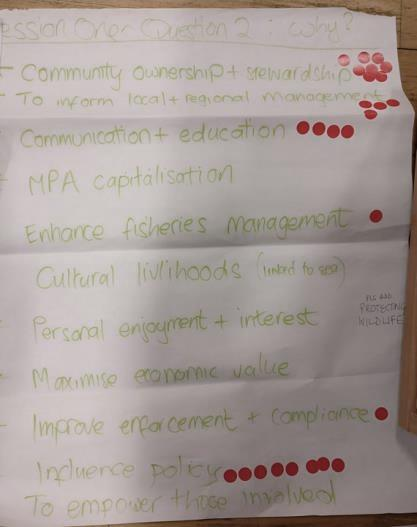 ession One: Question 2 : Why?
- Community ownership + stewardship
- To inform local + regional management
Communication + education
- MPA capitalisation
Enhance fisheries management
Cultural livlihoods (linked to sea)
PLS ADD
PROTECTING
WILDLIFE
- Personal enjoyment + interest
- Maximise economic value
- Improve enforcement + compliance
- Influence policy
To empower those involved